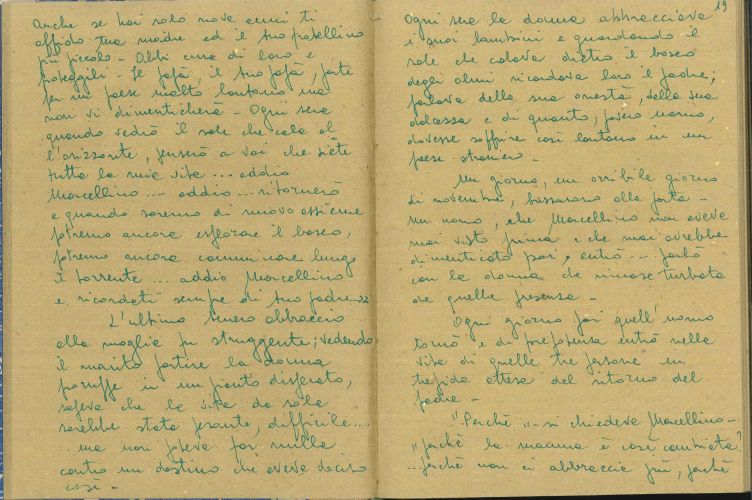 Anche se hai solo nove anni ti
affido tua madre ed il tuo fratellino
più piccolo - Abbi cura di loro e
proteggili - Il papà, il tuo papà, parte
per un paese molto lontano ma
non vi dimenticherà - Ogni sera
quando vedrò il sole che cala al
l'orizzonte, penserò a voi che siete
tutta la mia vita ... addio
Marcellino ... addio ... ritornerò
e quando saremo di nuovo assieme
potremo ancora esplorare il bosco,
potremo ancora camminare lungo
il torrente ... addio Marcellino
e ricordati sempre di tuo padre"
L'ultimo tenero abbraccio
alla moglie fu struggente; vedendo
il marito partire la donna
proruppe in un pianto disperato,
sapeva che la vita da sola
sarebbe stata pesante, difficile....
... ma non poteva far nulla
contro un destino che aveva deciso
così -
19
Ogni sera la donna abbracciava
i suoi bambini e guardando il
sole che calava dietro il bosco
degli olmi ricordava loro il padre;
parlava della sua onestà, della sua
dolcezza e di quanto, pover uomo,
dovesse soffrire così lontano in un
paese straniero -
Un giorno, un orribile giorno
di novembre, bussarono alla porta -
Un uomo, che Marcellino non aveva
mai visto prima e che mai avrebbe
dimenticato poi, entrò ... parlò
con la donna che rimase turbata
da quella presenza -
Ogni giorno poi quell'uomo
tornò e di prepotenza entrò nella
vita di quelle tre persone in
trepida attesa del ritorno del
padre -
"Perchè" - si chiedeva Marcellino -
"perchè la mamma è così cambiata?
...perchè non ci abbraccia più, perchè